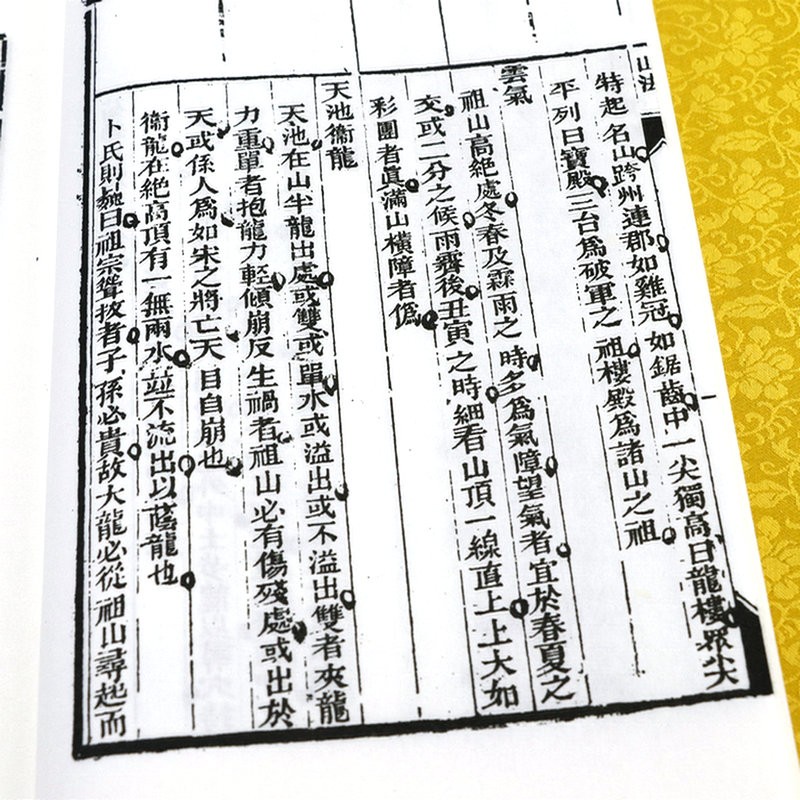 山法
特起名山跨州連郡如雞冠如鋸齒中一尖獨高曰龍樓眾尖
平列曰寶殿三台為破軍之祖樓殿為諸山之祖
雲氣
祖山高絕處冬春及霖雨之時多為氣障望氣者宜於春夏之
交或二分之候雨霽後丑寅之時細看山頂一線直上上大如
彩團者真滿山橫障者偽
天池衛龍
天池在山半龍出處或雙或單水或溢出或不溢出雙者夾龍
力重單者抱龍力輕傾崩反生禍者祖山必有傷殘處或出於
天或係人為如宋之將亡天目自崩也
衛龍在絕高頂有一無雨水並不流出以蔭龍也
卜氏則巍曰祖宗聳拔者子孫必貴故大龍必從祖山尋起而